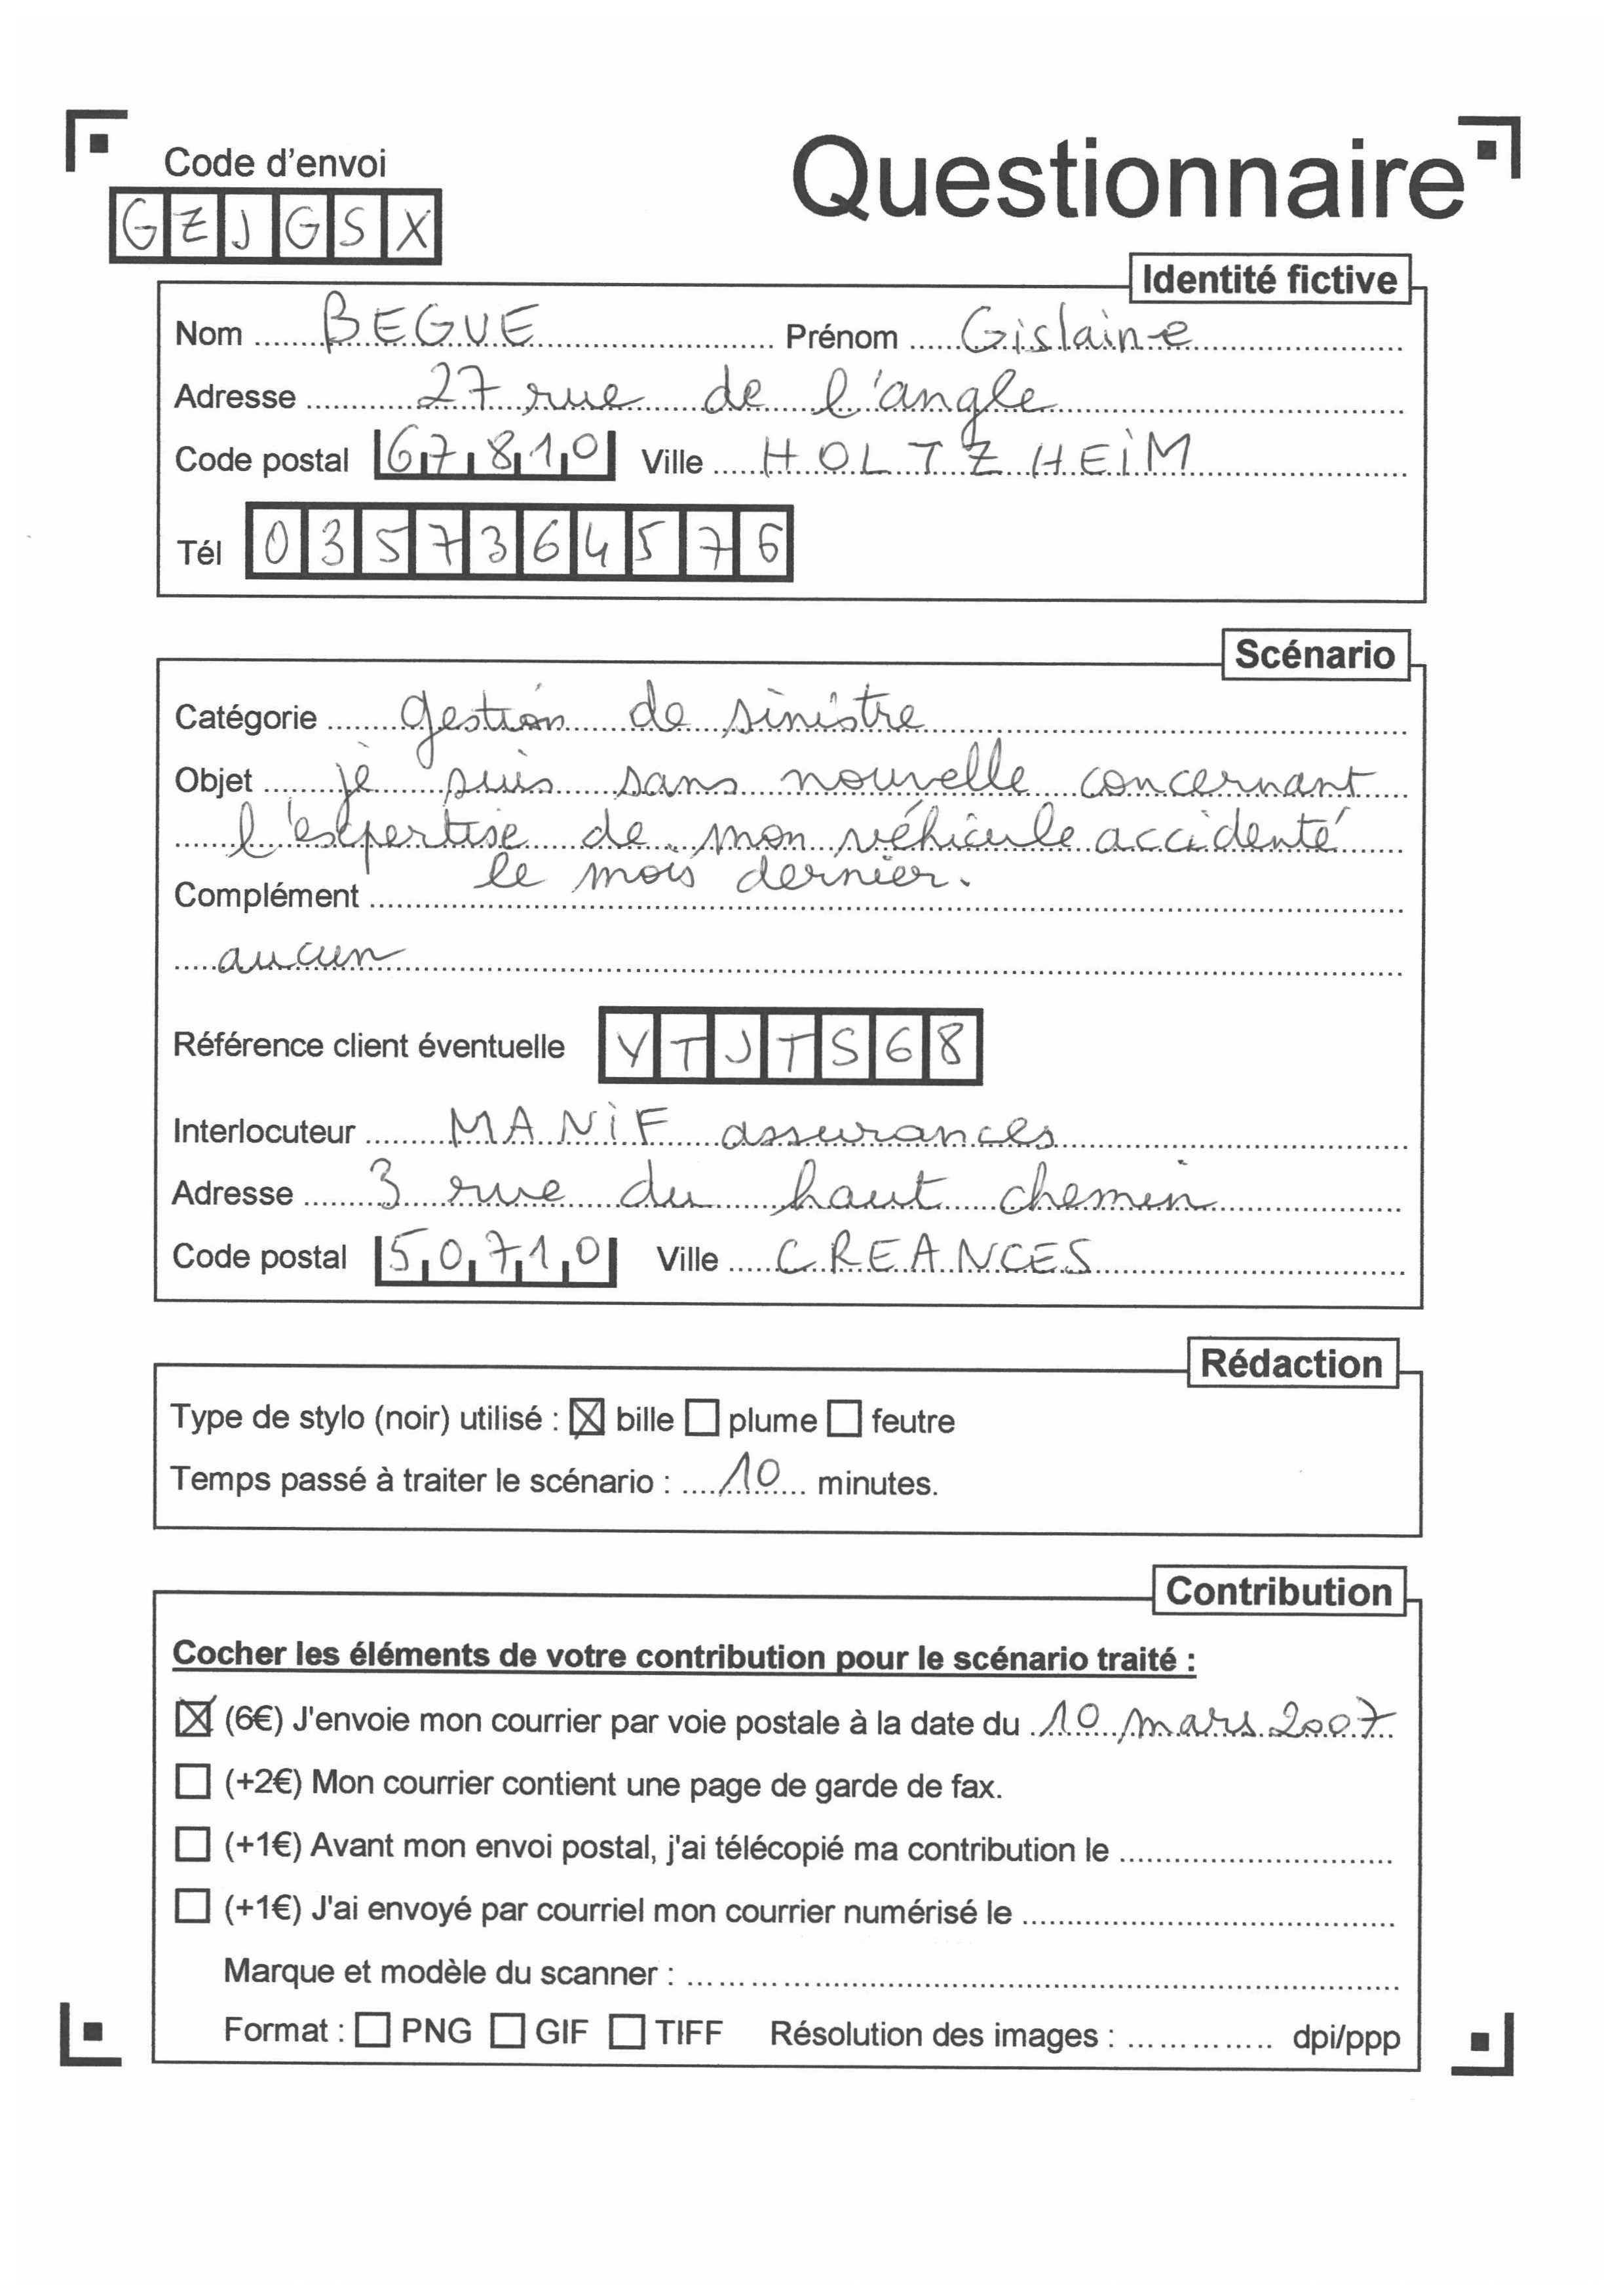 Code d'envoi
Questionnaire
GZJGSX
Identité fictive
Nom BEGUE Prénom Gislaine
Adresse 27 rue de l'angle
Code postal 67810 Ville HOLTZHEIM
Tél 0357364576
Scénario
Catégorie gestion de sinistre
Objet je suis sans nouvelle concernant
l'expertise de mon véhicule accidenté
le mois dernier.
Complément
aucun
Référence client éventuelle YTJTS68
Interlocuteur MANIF assurances
Adresse 3 rue du haut chemin
Code postal 50710 Ville CREANCES
Rédaction
Type de stylo (noir) utilisé : ☒ bille ☐ plume ☐ feutre
Temps passé à traiter le scénario : 10 minutes.
Contribution
Cocher les éléments de votre contribution pour le scénario traité :
☒ (6€) J'envoie mon courrier par voie postale à la date du 10 mars 2007
☐ (+2€) Mon courrier contient une page de garde de fax.
☐ (+1€) Avant mon envoi postal, j'ai télécopié ma contribution le
☐ (+1€) J'ai envoyé par courriel mon courrier numérisé le
Marque et modèle du scanner :
Format : ☐ PNG ☐ GIF ☐ TIFF Résolution des images : dpi/ppp